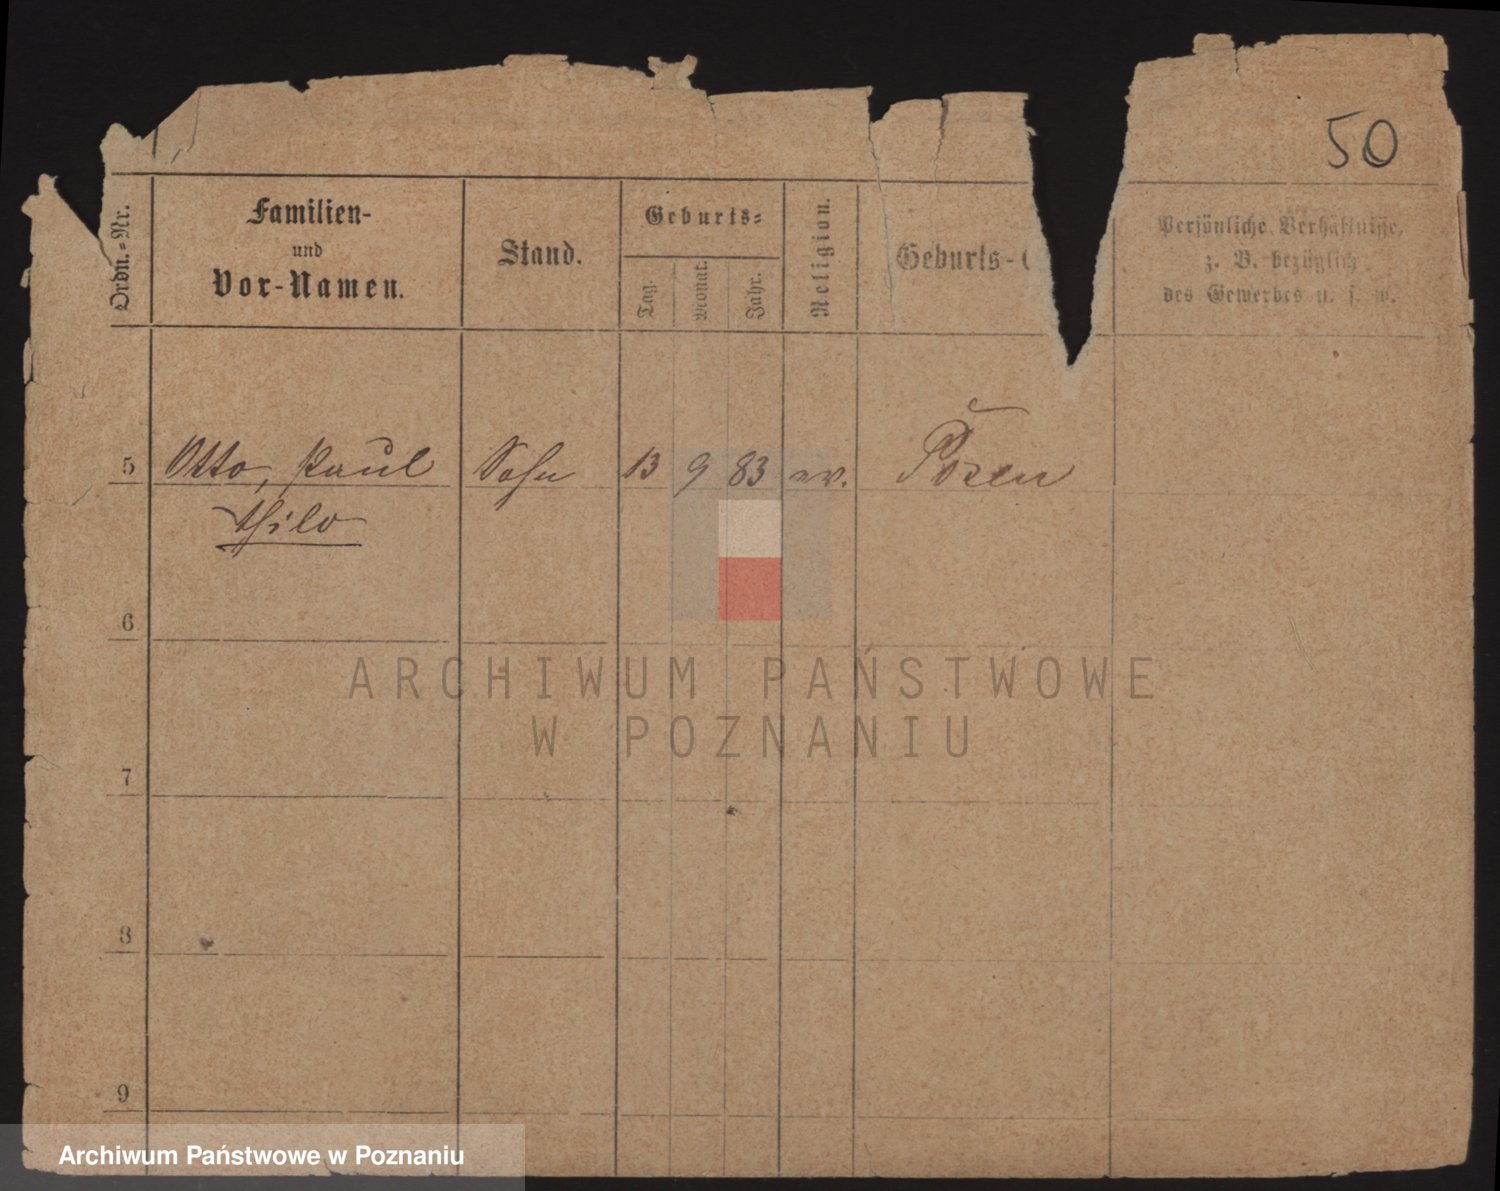 50
Ordn.-Nr.
Familien-
und
Vor-Namen.
Stand.
Geburts-
Tag.
Monat.
Jahr.
Religion.
Geburts-
Persönliche Verhältnisse,
z. B. bezüglich
des Gewerbes u. s. w.
5 Otto, Paul Sohn 13 9 83 ev. Posen
Thilo
6
ARCHIWUM PAŃSTWOWE
W POZNANIU
7
8
9
Archiwum Państwowe w Poznaniu